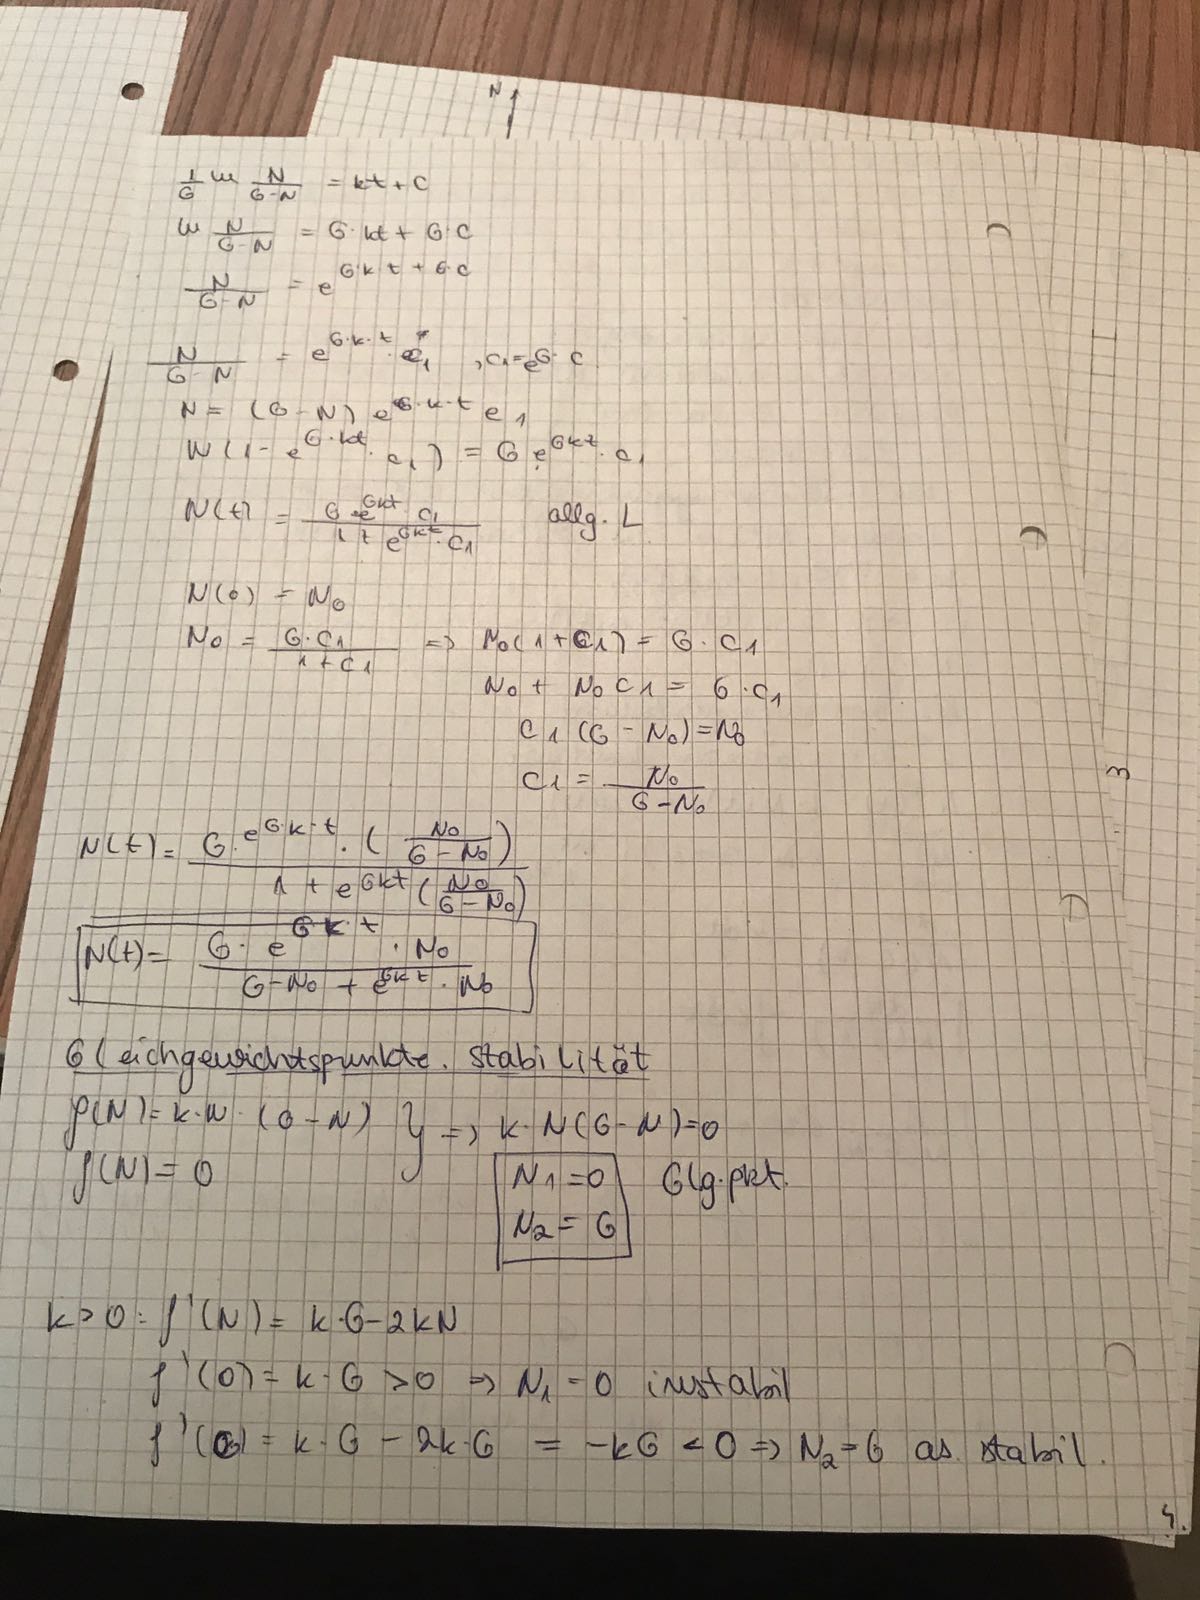 N
1/G ln N/(G-N) = kt + C
ln N/(G-N) = G·kt + G·C
N/(G-N) = e^(G·k·t + G·C)
N/(G-N) = e^(G·k·t) · c1 , c1 = e^(G·C)
N = (G-N) e^(G·k·t) c1
N(1 - e^(G·kt) · c1) = G e^(Gkt) · c1
N(t) = (G·e^(Gkt) c1)/(1 + e^(Gkt) · c1) allg. L
N(0) = N0
N0 = (G·C1)/(1+C1) => N0(1+C1) = G·C1
N0 + N0 C1 = G·C1
C1 (G - N0) = N0
C1 = N0/(G-N0)
N(t) = (G·e^(G·k·t) · (N0/(G-N0)))/(1 + e^(Gkt) (N0/(G-N0)))
N(t) = (G·e^(G·k·t) · N0)/(G-N0 + e^(Gkt) · N0)
Gleichgewichtspunkte. Stabilität
f(N) = k·N·(G-N) } => k·N(G-N) = 0
f(N) = 0
N1 = 0 Glg.pkt.
N2 = G
k>0: f'(N) = k·G - 2kN
f'(0) = k·G > 0 => N1 = 0 instabil
f'(G) = k·G - 2k·G = -kG < 0 => N2 = G as. stabil.
4.